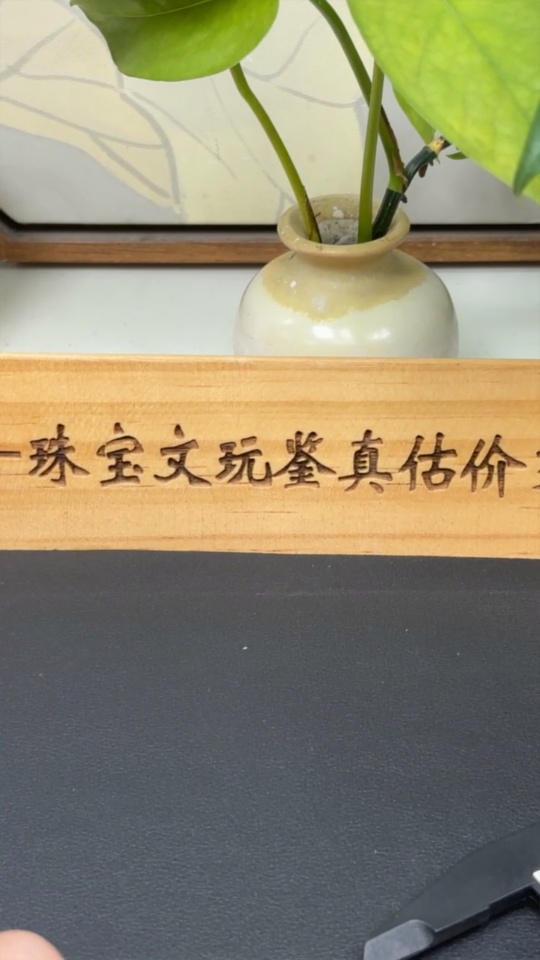 珠宝文玩鉴真估价